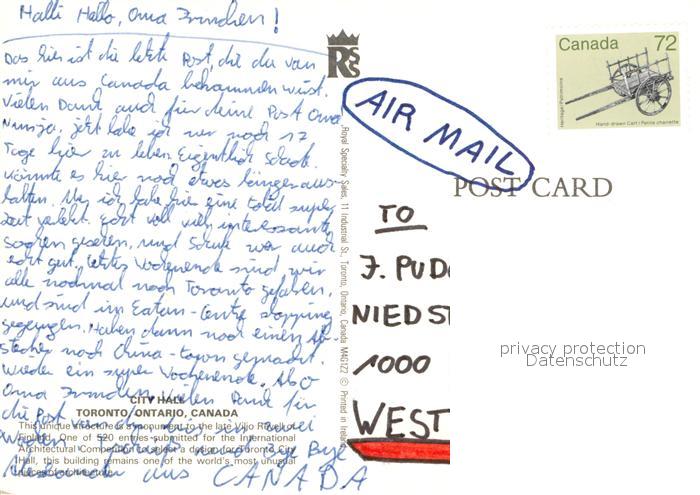 Halli Hallo, Oma
Das hier ist die letzte Post, die du von
mir aus Canada bekommen wirst.
Vielen Dank auch für deine Post Oma
jetzt habe ich nur noch 17
Tage hier zu leben. Eigentlich schade
könnte es hier noch etwas länger aus-
halten. ich habe hier eine total super
Zeit gehabt. Echt voll viele interessante
gesehen, und Schule war auch
echt gut, letztes Wochenende sind wir
alle nochmal nach Toronto gefahren,
und sind im Eaton-Centre shopping
gegangen. Haben dann noch einen Ab-
stecher nach China-town gemacht.
Wieder ein super Wochenende. Also
Oma vielen Dank für
die Post
Bye Bye
aus CANADA
CITY HALL
TORONTO, ONTARIO, CANADA
This unique structure is a monument to the late Viljo Revell of
Finland. One of 520 entries submitted for the International
Architectural Competition to select a design for Toronto City
Hall, this building remains one of the world's most unusual
pieces of architecture.
RSS
Royal Specialty Sales, 11 Industrial St., Toronto, Ontario, Canada M4G1Z2 © Printed in Ireland
AIR MAIL
Canada 72
Heritage/Patrimoine
Hand-drawn Cart / Petite charrette
POST CARD
TO
J. PUD
NIEDS
1000
WEST
privacy protection
Datenschutz